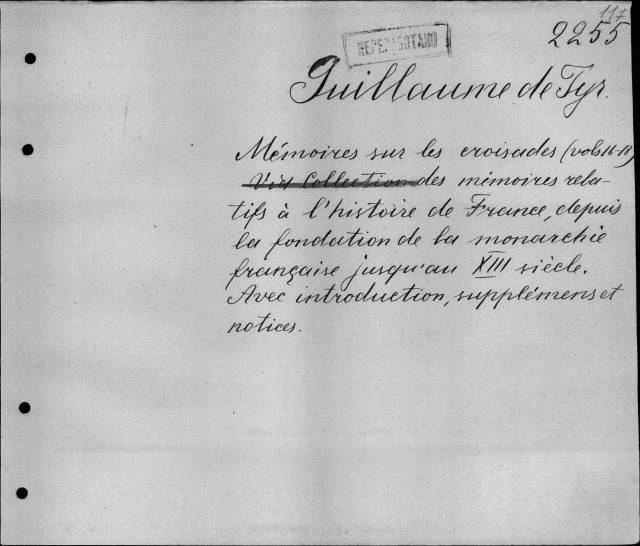 117
2255
Guillaume de Tyr.
Mémoires sur les croisades (vols 16-18)
Vid Collection des mémoires rela-
tifs à l'histoire de France, depuis
la fondation de la monarchie
française jusqu'au XIII siècle.
Avec introduction, supplémens et
notices.